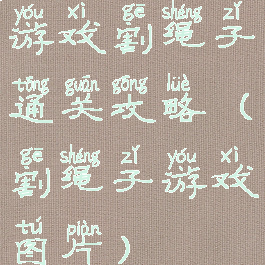 yóu xì gē shéng zǐ
游戏割绳子
tōng guān gōng lüè
通关攻略（
gē shéng zǐ yóu xì
割绳子游戏
tú piàn
图片）